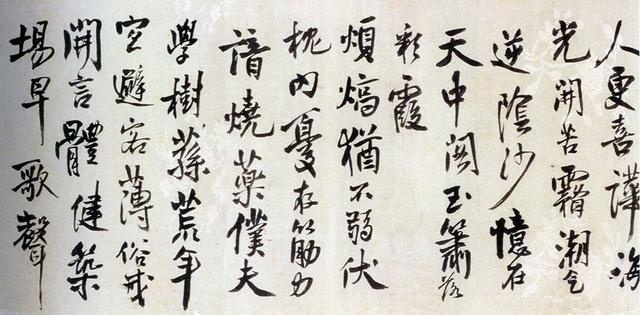 人更喜譁海
光開苦霜潮气
逆陰沙憶在
天中閣玉簫落
彩霞
煩熇猶不弱伏
枕內憂存筋力
諳燒藥僕夫
學樹蓀荒年
空避客薄俗戒
開言體健築
場早歌聲